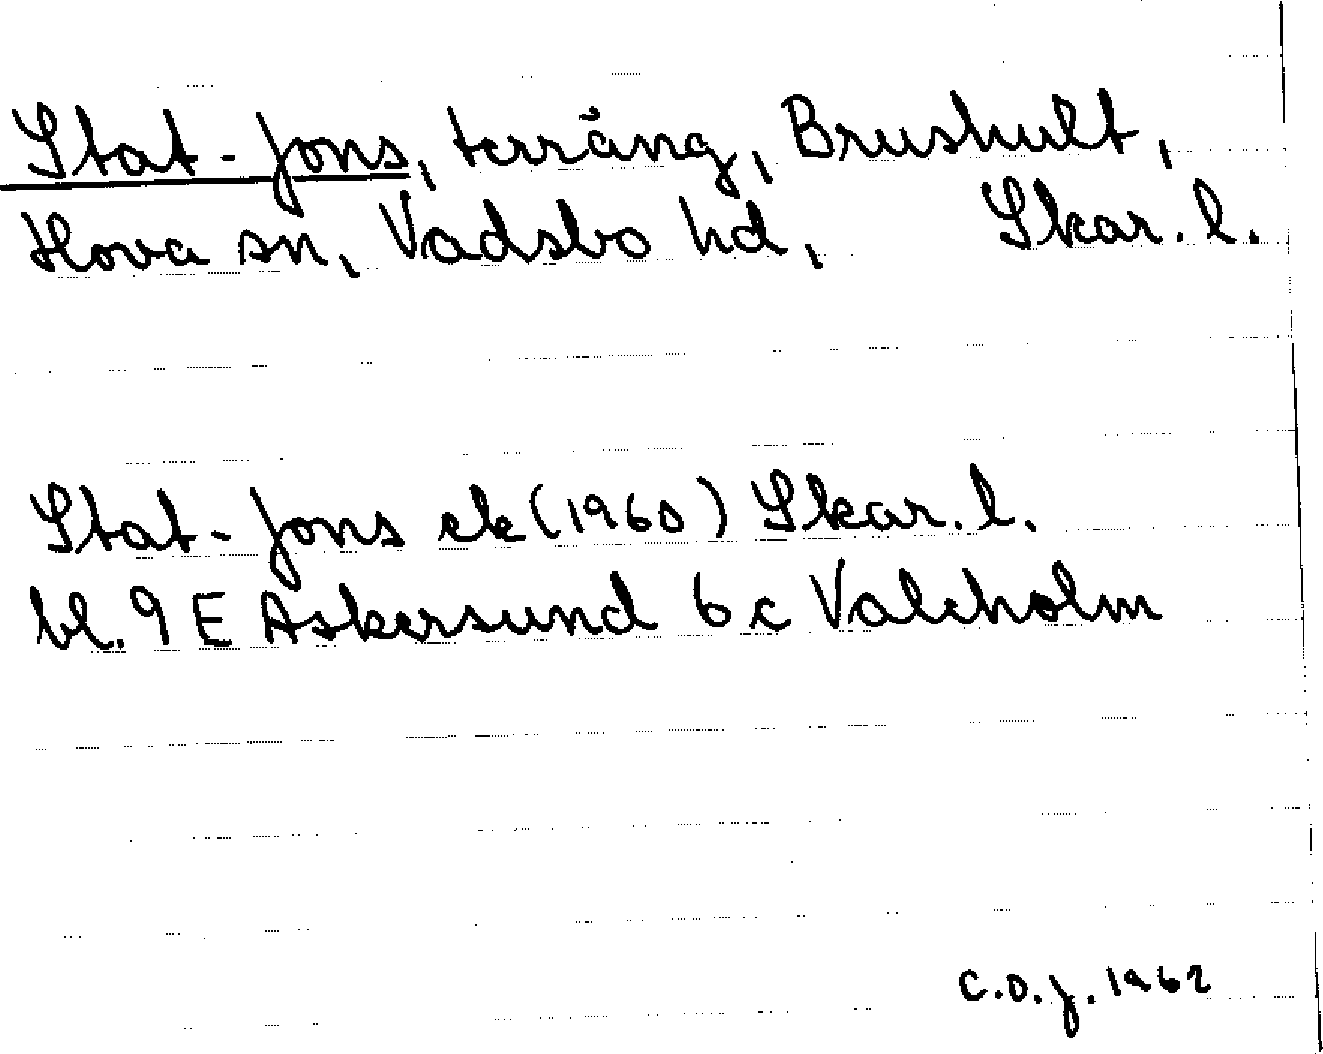 Stat-Jons, terräng, Brushult,
Hova sn, Vadsbo hd, Skar. l.
Stat-Jons ek (1960) Skar. l.
bl. 9 E Askersund 6 c Valcholm
C.O.J. 1962